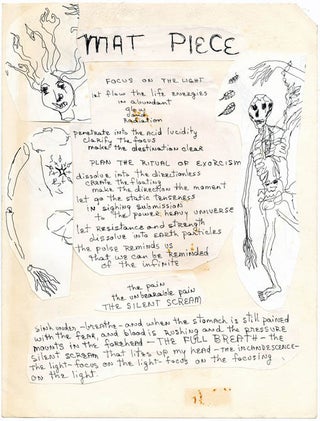 MAT PIECE
FOCUS ON THE LIGHT
let flow the life energies
in abundant
glow
and
Radiation
penetrate into the acid lucidity
clarify the focus
make the destination clear
PLAN THE RITUAL OF EXORCISM
dissolve into the directionless
create the floating
make the direction the moment
let go the static tenseness
IN sighing submission
to the power heavy UNIVERSE
let resistance and strength
dissolve into earth particles
the pulse reminds us
that we can be reminded
of the infinite
the pain
the unbearable pain
THE SILENT SCREAM
sink under-breathe-and when the stomach is still pained
with the fear, and blood is rushing and the pressure
mounts in the forehead-THE FULL BREATH-the
silent scream that lites up my head-THE INCANDESCENCE-
the light-focus on the light-focus on the focusing
on the light